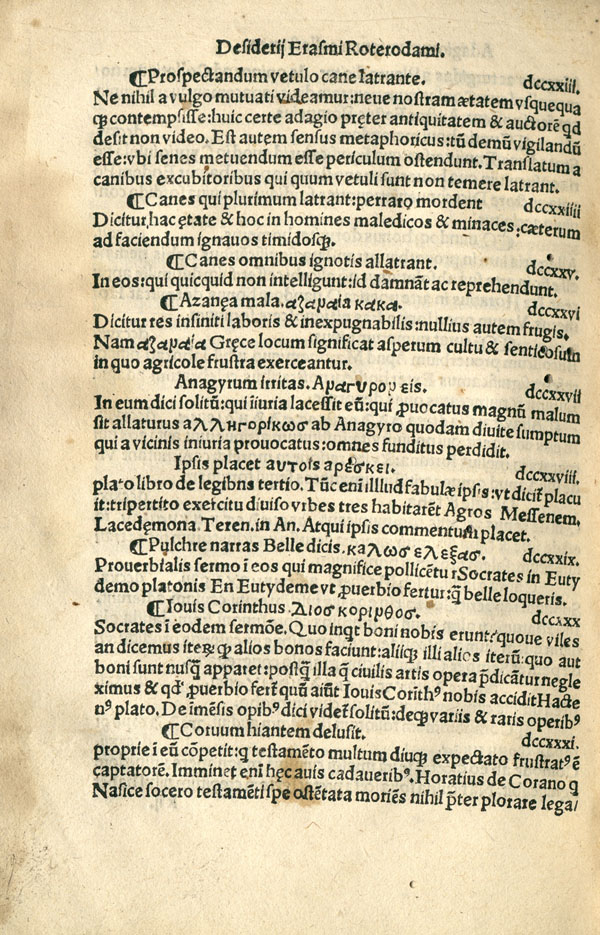 Desiderij Erasmi Roterodami.
¶Prospectandum vetulo cane latrante. dccxxiii.
Ne nihil a vulgo mutuati videamur: neue nostram ætatem vsquequa
qȝ contempsisse: huic certe adagio pręter antiquitatem & auctorē qd
desit non video. Est autem sensus metaphoricus: tū demū vigilandū
esse: vbi senes metuendum esse periculum ostendunt. Translatum a
canibus excubitoribus qui quum vetuli sunt non temere latrant.
¶Canes qui plurimum latrant: perraro mordent dccxxiiii
Dicitur, hac ętate & hoc in homines maledicos & minaces, cæterum
ad faciendum ignauos timidosqȝ.
¶Canes omnibus ignotis allatrant. dccxxv.
In eos: qui quicquid non intelligunt: id damnāt ac reprehendunt.
¶Azanęa mala. αζαναία κακα. dccxxvi
Dicitur res infiniti laboris & inexpugnabilis: nullius autem frugis.
Nam αζαναία Gręce locum significat asperum cultu & senticosum
in quo agricole frustra exerceantur.
Anagyrum irritas. Αναγυρον εις. dccxxvii
In eum dici solitū: qui iīuria lacessit eū: qui ꝓuocatus magnū malum
sit allaturus αλληγορίκωσ ab Anagyro quodam diuite sumptum
qui a vicinis iniuria prouocatus: omnes funditus perdidit.
Ipsis placet αυτοίσ αρέσκει. dccxxviii.
plato libro de legibns tertio. Tūc enī illlud fabulæ ipsis: vt dicit placu
it: tripertito exercitu diuiso vrbes tres habitarēt Agros Messenem,
Lacedęmona. Teren. in An. Atqui ipsis commentum placet.
¶Pulchre narras Belle dicis. καλωσ ελεξασ. dccxxix.
Prouerbialis sermo ī eos qui magnifice pollicētur Socrates in Euty
demo platonis En Eutydeme vt ꝓuerbio fertur: q̄ belle loqueris.
¶Iouis Corinthus. Διοσ κορινθοσ. dccxxx
Socrates ī eodem sermōe. Quo inqt boni nobis erunt: quoue viles
an dicemus iterȝ qȝ alios bonos faciunt: aliiqȝ illi alios iterū: quo aut
boni sunt nusq̄ apparet: postqȝ illa q̄ ciuilis artis opera p̄dicātur negle
ximus & qd' ꝓuerbio fert' quū aiūt Iouis Corīthꝰ nobis accidit Hacte
nꝰ plato. De īmēsis opibꝰ dici videt' solitū: deqȝ variis & raris operibꝰ
¶Coruum hiantem delusit. dccxxxi.
proprie ī eū cōpetit: q testamēto multum diuqȝ expectato frustratꝰ ē
captatorē. Imminet enī hęc auis cadaueribꝰ. Horatius de Corano q
Nasice socero testamēti spe ostētata moriēs nihil p̄ter plorare lega/